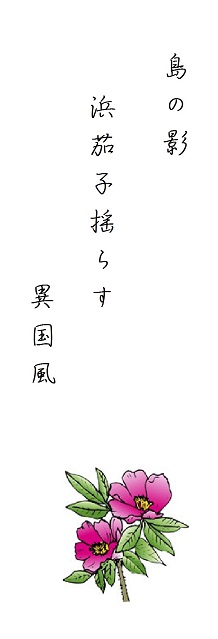 島の影
浜茄子揺らす
異国風